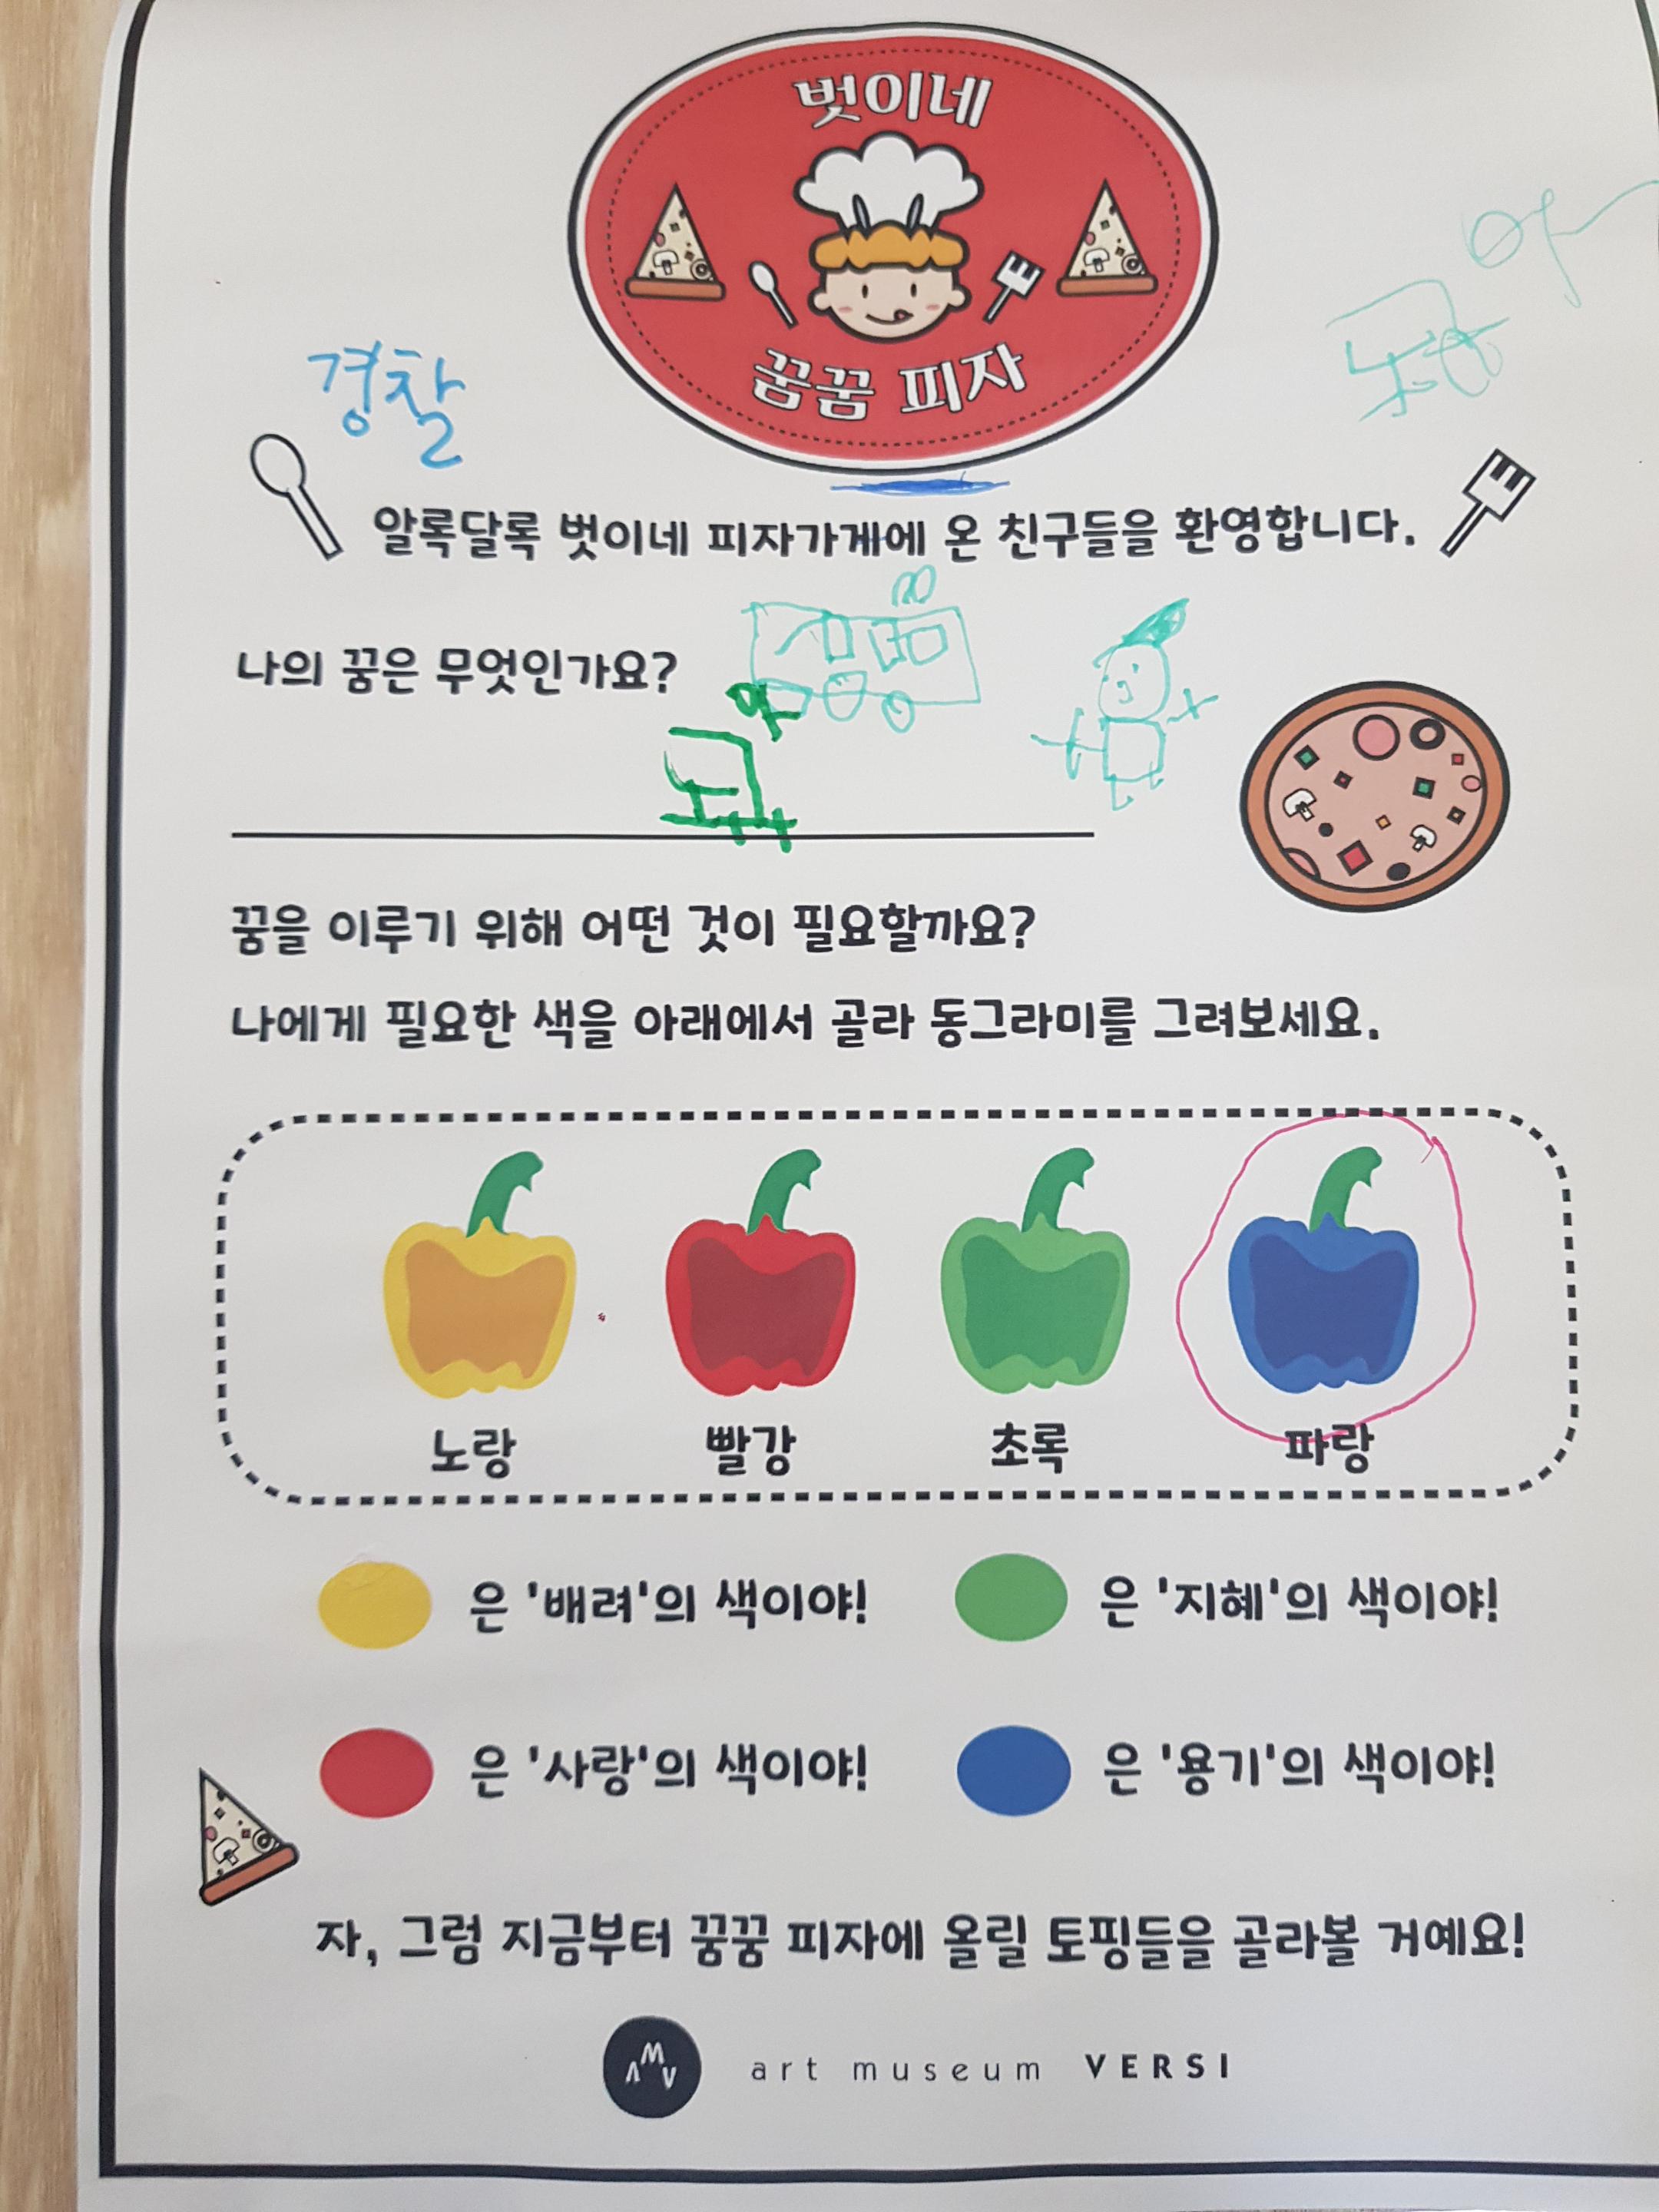 벗이네
꿈꿈 피자
경찰
알록달록 벗이네 피자가게에 온 친구들을 환영합니다.
나의 꿈은 무엇인가요?
꿈을 이루기 위해 어떤 것이 필요할까요?
나에게 필요한 색을 아래에서 골라 동그라미를 그려보세요.
노랑 빨강 초록 파랑
은 '배려'의 색이야! 은 '지혜'의 색이야!
은 '사랑'의 색이야! 은 '용기'의 색이야!
자, 그럼 지금부터 꿈꿈 피자에 올릴 토핑들을 골라볼 거예요!
AMV art museum VERSI